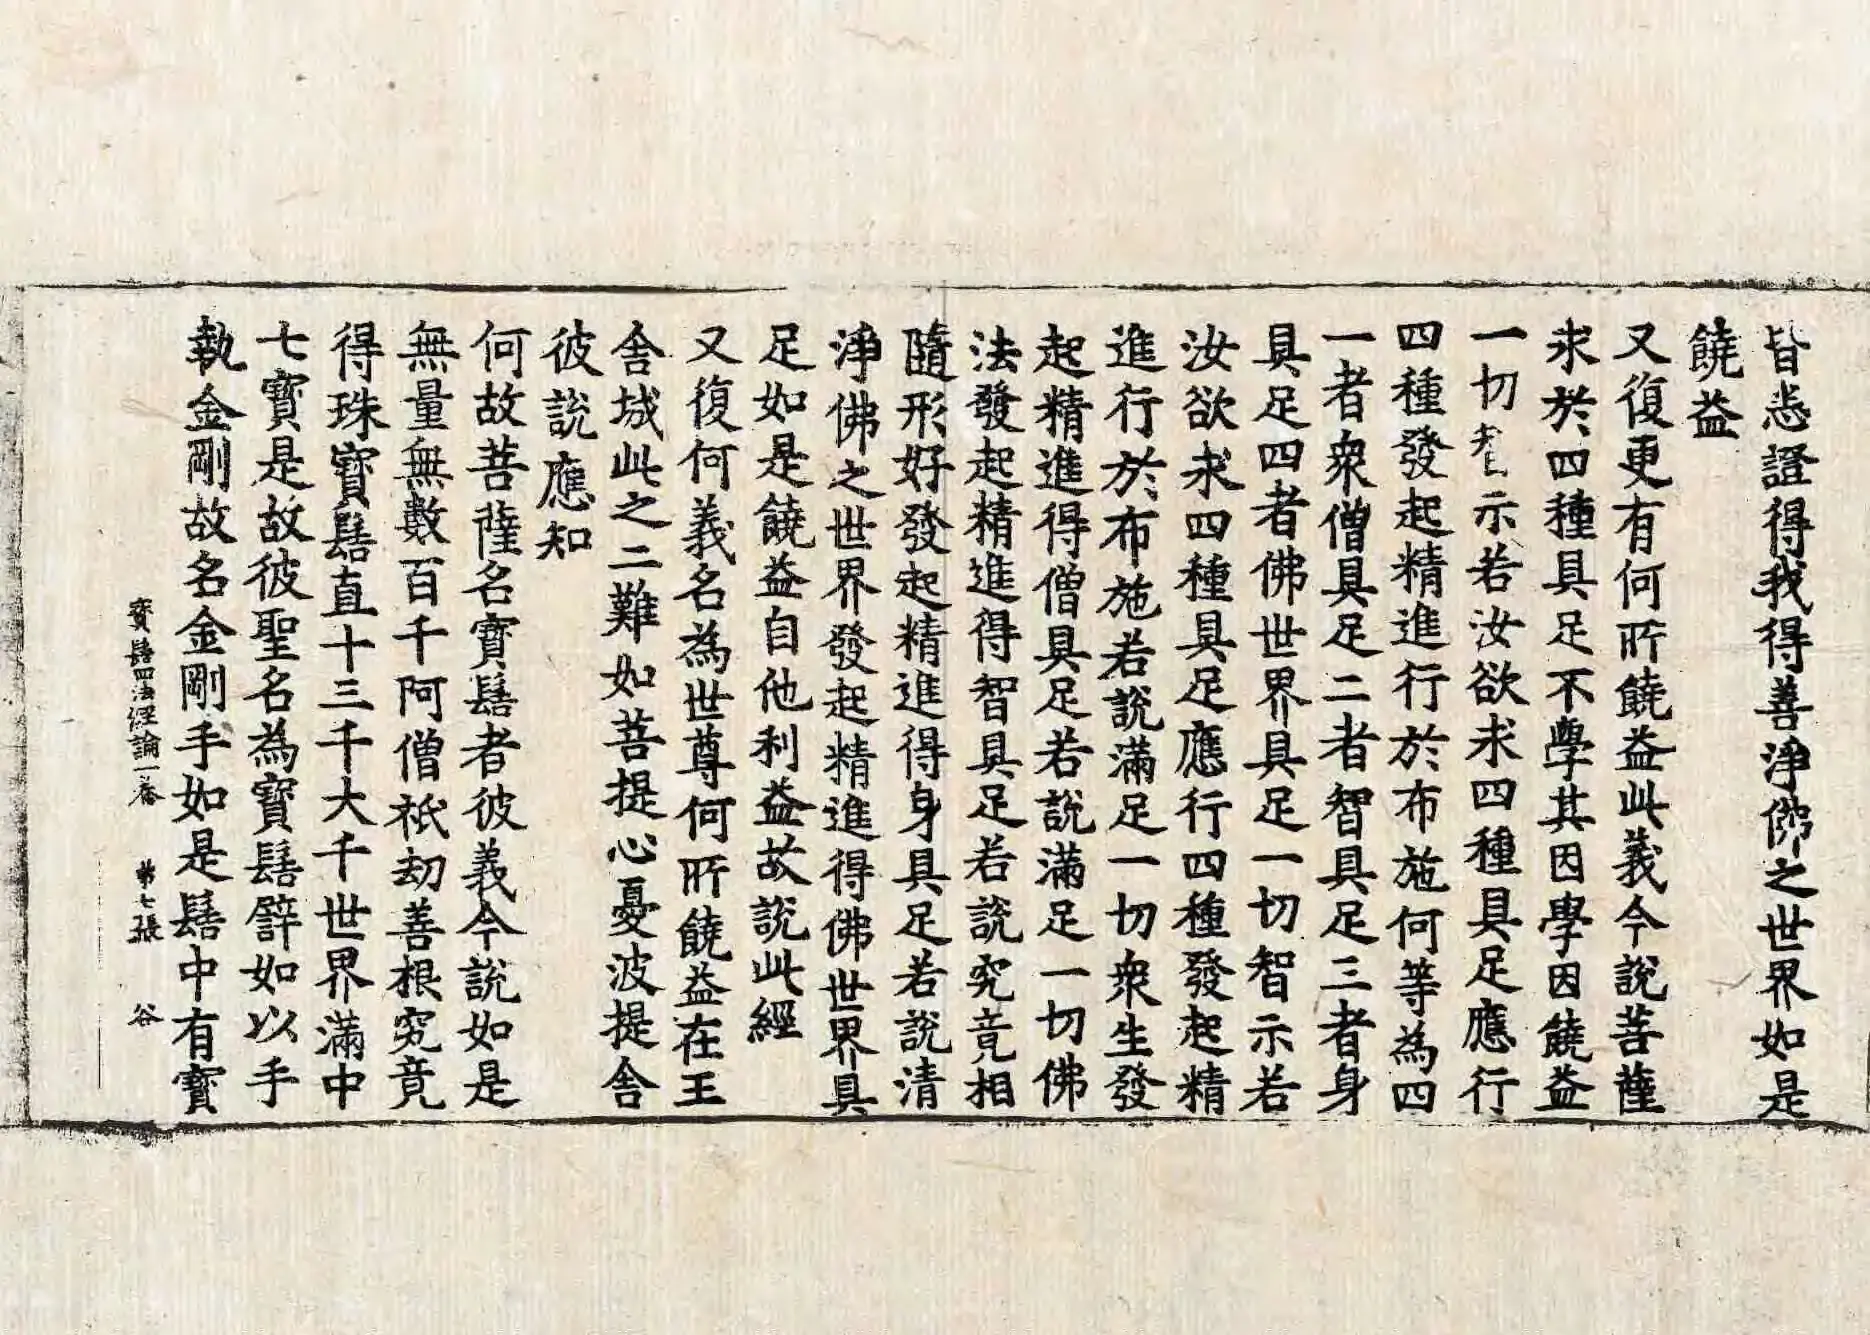 皆悉證得我得善淨佛之世界如是
饒益
又復更有何所饒益此義今說菩薩
求於四種具足不學其因學因饒益
一切智示若汝欲求四種具足應行
四種發起精進行於布施何等為四
一者衆僧具足二者智具足三者身
具足四者佛世界具足一切智示若
汝欲求四種具足應行四種發起精
進行於布施若說滿足一切衆生發
起精進得僧具足若說滿足一切佛
法發起精進得智具足若說究竟相
隨形好發起精進得身具足若說清
淨佛之世界發起精進得佛世界具
足如是饒益自他利益故說此經
又復何義名為世尊何所饒益在王
舍城此之二難如菩提心憂波提舍
彼說應知
何故菩薩名寶髻者彼義今說如是
無量無數百千阿僧祇劫善根究竟
得珠寶髻直十三千大千世界滿中
七寶是故彼聖名為寶髻譬如以手
執金剛故名金剛手如是髻中有寶
寶髻四法經論一卷 第七張 谷